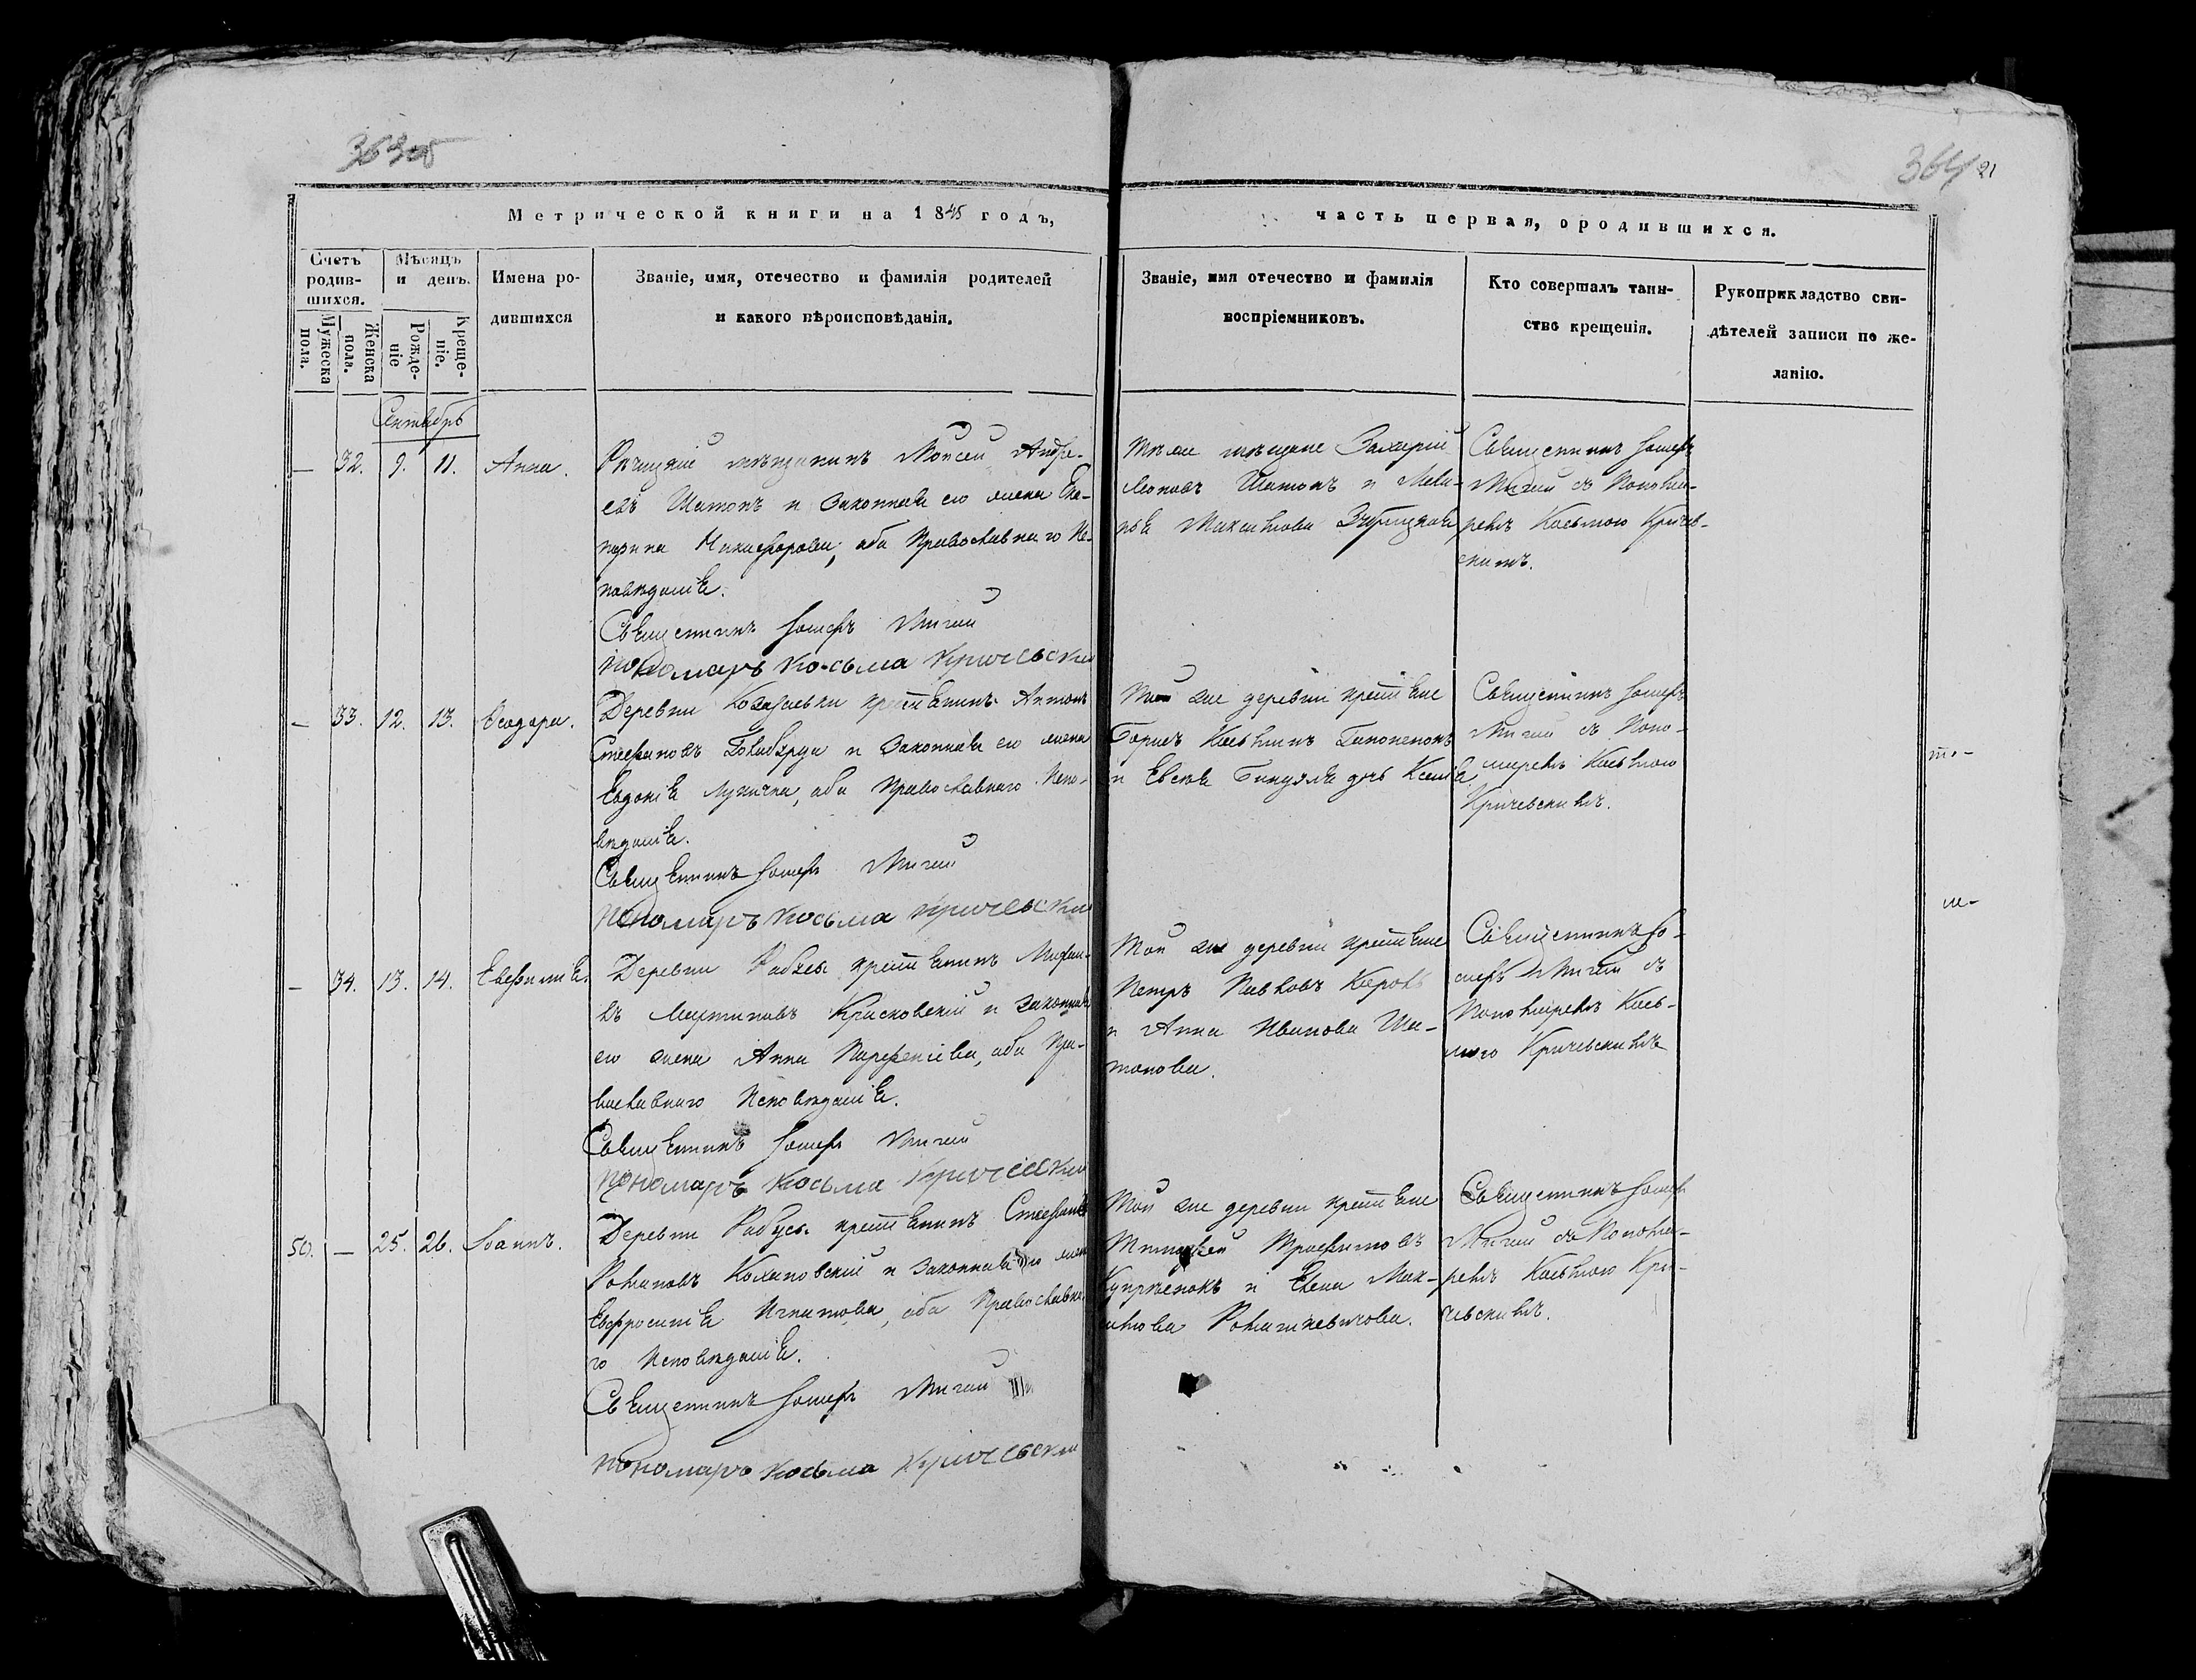 363 об
364 21
Метрической книги на 1845 годъ,
часть первая, о родившихся.
Счетъ родив-
шихся.
Мужеска пола.
Женска пола.
Мѣсяцъ и день.
Рожде-
ніе
Креще-
ніе.
Имена ро-
дившихся
Званіе, имя, отечество и фамилія родителей
и какого вѣроисповѣданія.
Званіе, имя отечество и фамилія
воспріемниковъ.
Кто совершалъ таин-
ство крещенія.
Рукоприкладство сви-
дѣтелей записи по же-
ланію.
Сентябрь
— 32. 9. 11. Анна.
Рѣчицкій мѣщанинъ Моисей Андре-
евъ Шатонъ и законная его жена Ека-
терина Никифорова, оба Православнаго Ис-
повѣданія.
Священникъ Іосифъ Мигай
Пономаръ Косьма Кричевский
Тѣ же мѣщане Захарій
Леоновъ Шатонъ и Мела-
нія Максимова
Священникъ Іосифъ
Мигай съ Понома-
ремъ Касьмою Кричев-
скимъ.
— 33. 12. 13. Ѳеодора.
Деревни крестьянинъ Антонъ
Стефановъ и законная его жена
Евдокія Лукична, оба Православнаго Испо-
вѣданія.
Священникъ Іосифъ Мигай
Пономаръ Косьма Кричевский
Той же деревни крестьяне
Борисъ Касьминъ
и Евва
Священникъ Іосифъ
Мигай съ Поно-
маремъ Касьмою
Кричевскимъ.
— 34. 13. 14. Евфимія.
Деревни крестьянинъ Михаи-
лъ Мартиновъ Красковскій и законная
его жена Анна Парфеніева, оба Пра-
вославнаго Исповѣданія.
Священникъ Іосифъ Мигай
Пономаръ Косьма Кричевский
Той же деревни крестьяне
Петръ Павловъ Король
и Анна Иванова Ша-
тонова.
Священникъ Іо-
сифъ Мигай съ
Пономаремъ Кась-
мою Кричевскимъ
50. — 25. 26. Іоаннъ.
Деревни крестьянинъ Стефанъ
Романовъ Колановскій и законная его жена
Евфросинія Игнатова, оба Православна-
го Исповѣданія.
Священникъ Іосифъ Мигай
Пономаръ Косьма Кричевский
Той же деревни крестьяне
Тимофей Трофимовъ
и Елена Мак-
симова Романкевичова.
Священникъ Іосифъ
Мигай съ Понома-
ремъ Касьмою Кри-
чевскимъ.